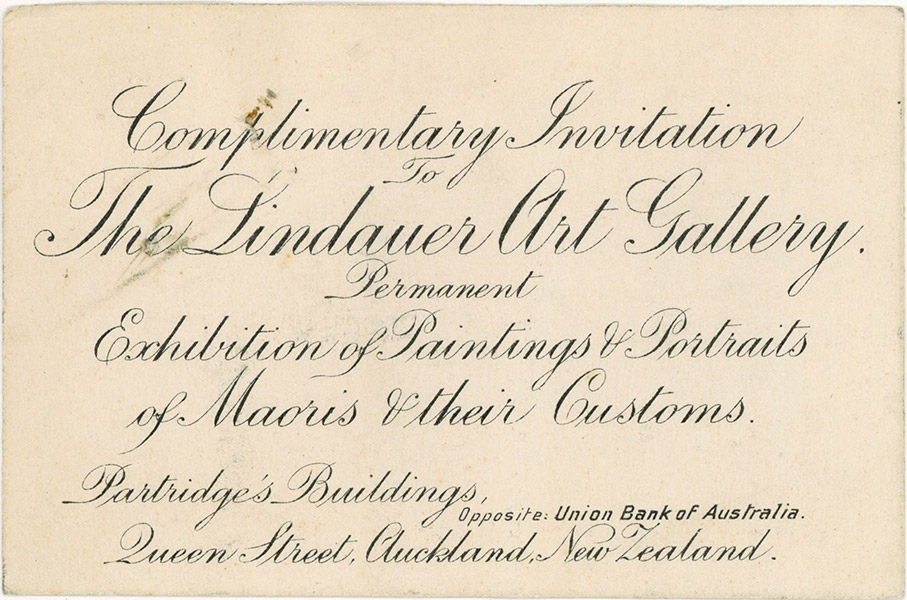 Complimentary Invitation
To
The Lindauer Art Gallery.
Permanent
Exhibition of Paintings & Portraits
of Maoris & their Customs.
Partridge's Buildings,
Opposite: Union Bank of Australia.
Queen Street, Auckland, New Zealand.